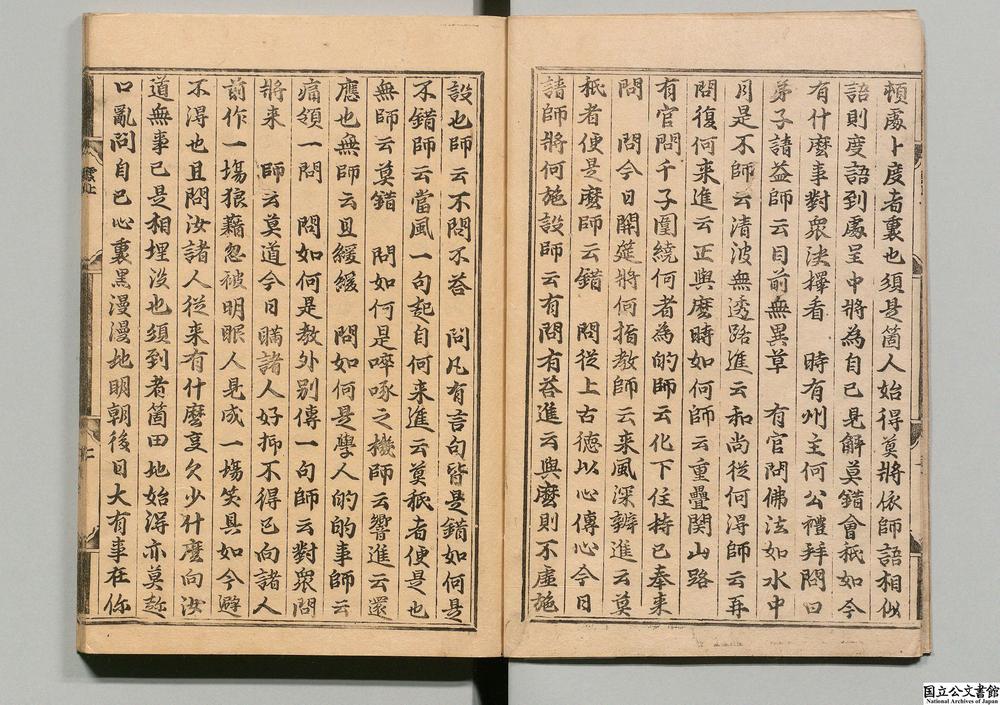 頼處卜度者裏也須是箇人始得莫將依師語相似
語則度語到處呈中將為自己見解莫錯會秖如今
有什麽事對衆決擇看　時有州主何公禮拜問曰
弟子請益師云目前無異草　有官問佛法如水中
月是不師云清波無透路進云和尚從何得師云再
問復何来進云正與麽時如何師云重疊関山路
有官問千子圍繞何者為的師云化下住持已奉来
問　問今日開筵將何指教師云来風深辨進云莫
秖者便是麽師云錯　問從上古德以心傳心今日
請師將何施設師云有問有荅進云與麽則不虚施
設也師云不問不荅　問凡有言句皆是錯如何是
不錯師云當風一句起自何来進云莫秖者便是也
無師云莫錯　問如何是啐啄之機師云響進云還
應也無師云且緩緩　問如何是學人的的事師云
痛領一問　問如何是教外别傳一句師云對衆問
將来　師云莫道今日瞞諸人好抑不得已向諸人
前作一塲狼藉忽被明眼人見成一塲笑具如今避
不得也且問汝諸人從来有什麽㪅欠少什麽向汝
道無事已是相埋没也須到者箇田地始得亦莫趂
口亂問自己心裏黒漫漫地明朝後日大有事在你
雲上
二
国立公文書館
National Archives of Japan